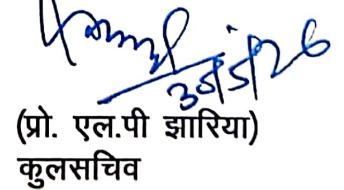 30/5/26
(प्रो. एल.पी झारिया)
कुलसचिव